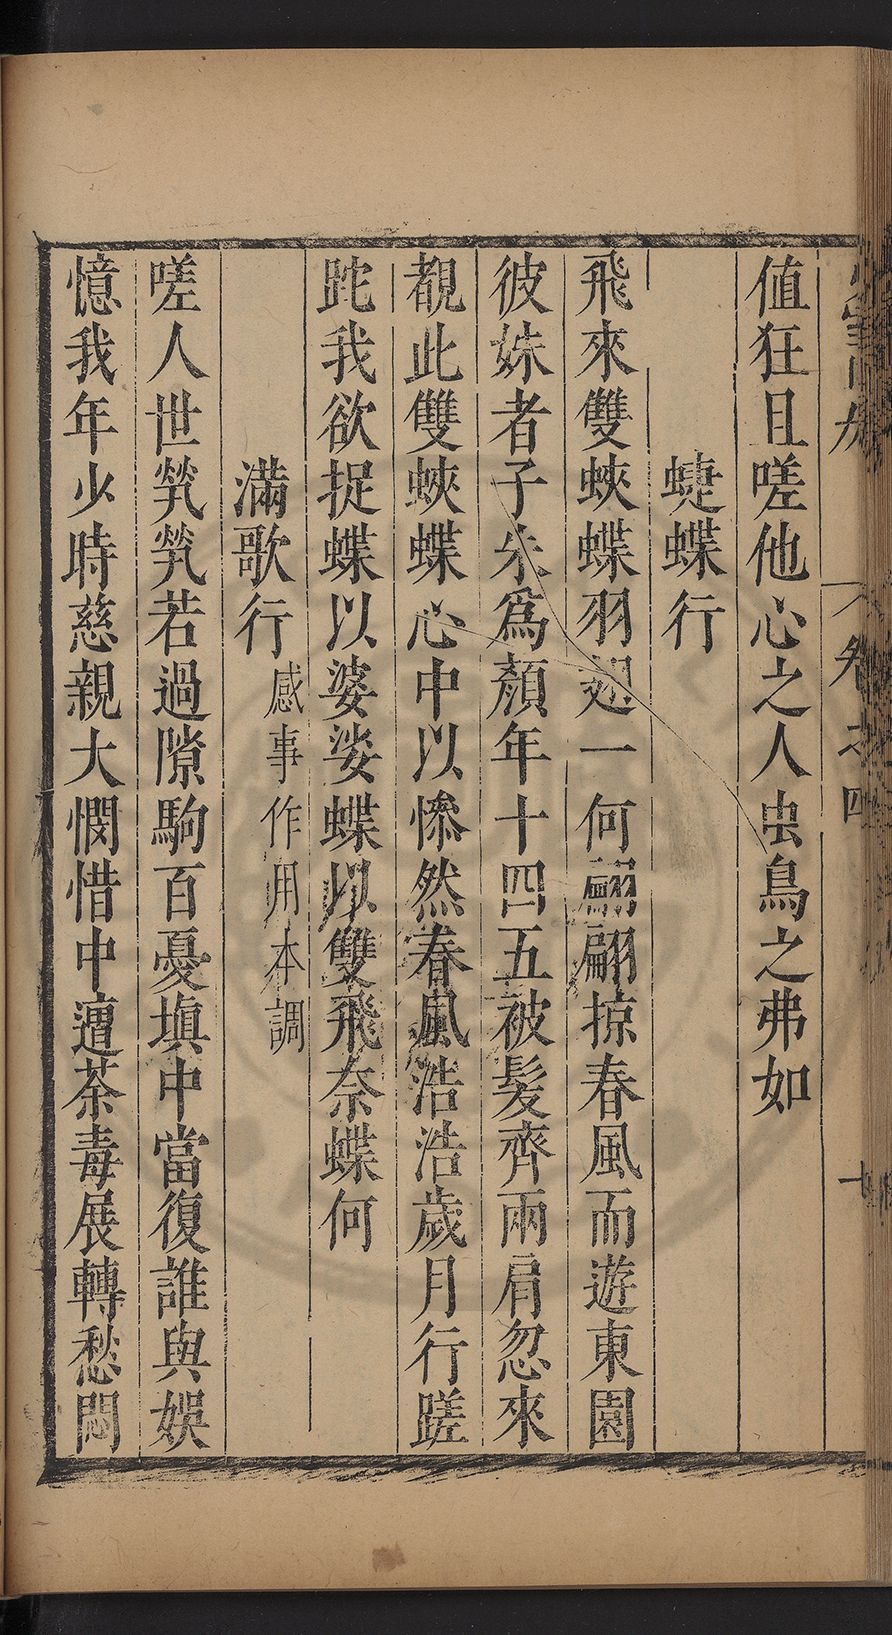 值狂且嗟他心之人虫鳥之弗如
蜨蝶行
飛來雙蛺蝶羽翅一何翩翩掠春風而遊東園
彼姝者子朱爲顏年十四五被髮齊兩肩忽來
覩此雙蛺蝶心中以慘然春風浩浩歲月行蹉
跎我欲捉蝶以婆娑蝶以雙飛奈蝶何
滿歌行 感事作用本調
嗟人世煢煢若過隙駒百憂塡中當復誰與娛
憶我年少時慈親大憫惜中遭荼毒展轉愁悶
卷之四
十